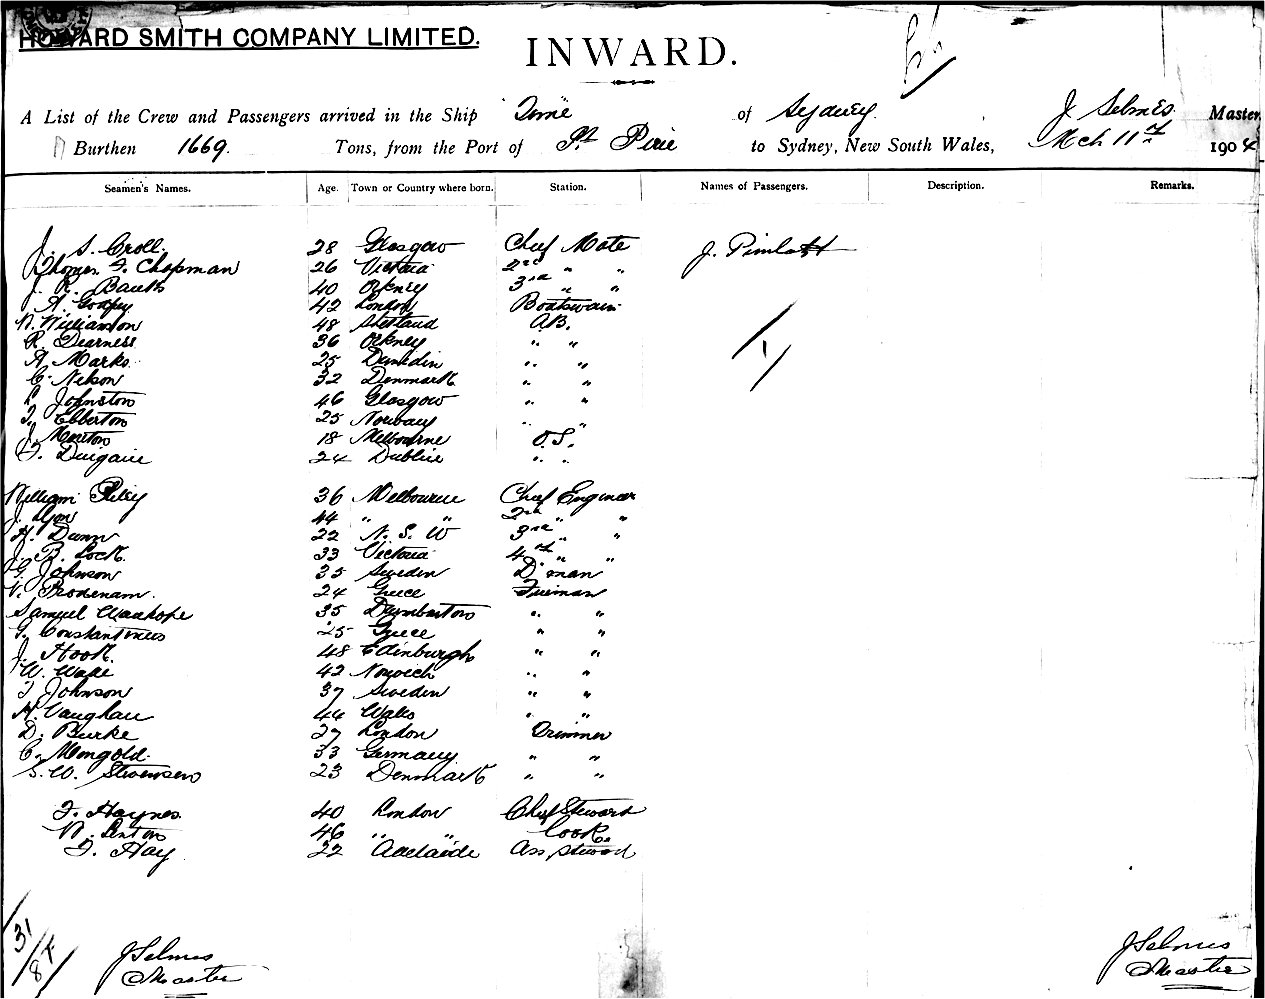 HOWARD SMITH COMPANY LIMITED.
INWARD.
A List of the Crew and Passengers arrived in the Ship Time of Sydney. J Selmes Master
Burthen 1669. Tons, from the Port of Pt Pirie to Sydney, New South Wales, Mch 11th 1904
Seamen's Names. Age. Town or Country where born. Station. Names of Passengers. Description. Remarks.
J. S. Croll. 28 Glasgow Chief Mate J. Pimlott
Thomas F. Chapman 26 Victoria 2nd " "
J. R. 40 Orkney 3rd " "
A Godfrey 42 London Boatswain
W. Williamson 48 Shetland A.B.
R. Dearness 36 Orkney " "
A. Marks 25 Dunedin " "
C. Nelson 32 Denmark " "
L Johnston 46 Glasgow " "
T. Ebberton 25 Norway " "
J. Moreton 18 Melbourne O.S.
F. 24 Dublin " "
William Riley 36 Melbourne Chief Engineer
J. Lyon 44 " " 2nd " "
H. Dunn 22 N. S. W 3rd " "
J. B. Lock. 33 Victoria 4th " "
G. Johnson 35 Sweden D'man
V. 24 Greece Fireman
Samuel Wauhope 35 Dumbarton " "
G. Constantinus 25 Greece " "
J. Hook. 48 Edinburgh " "
W. Wade 42 Norwich " "
J Johnson 37 Sweden " "
H. Vaughan 44 Wales " "
D. Burke 27 London Trimmer
C. Mongold. 33 Germany " "
S. W. Stevensen 23 Denmark " "
F. Haynes 40 London Chief Steward
W. Linton 46 " " Cook.
F. Hay 22 Adelaide Ass Steward
31
J Selmes J Selmes
Master Master